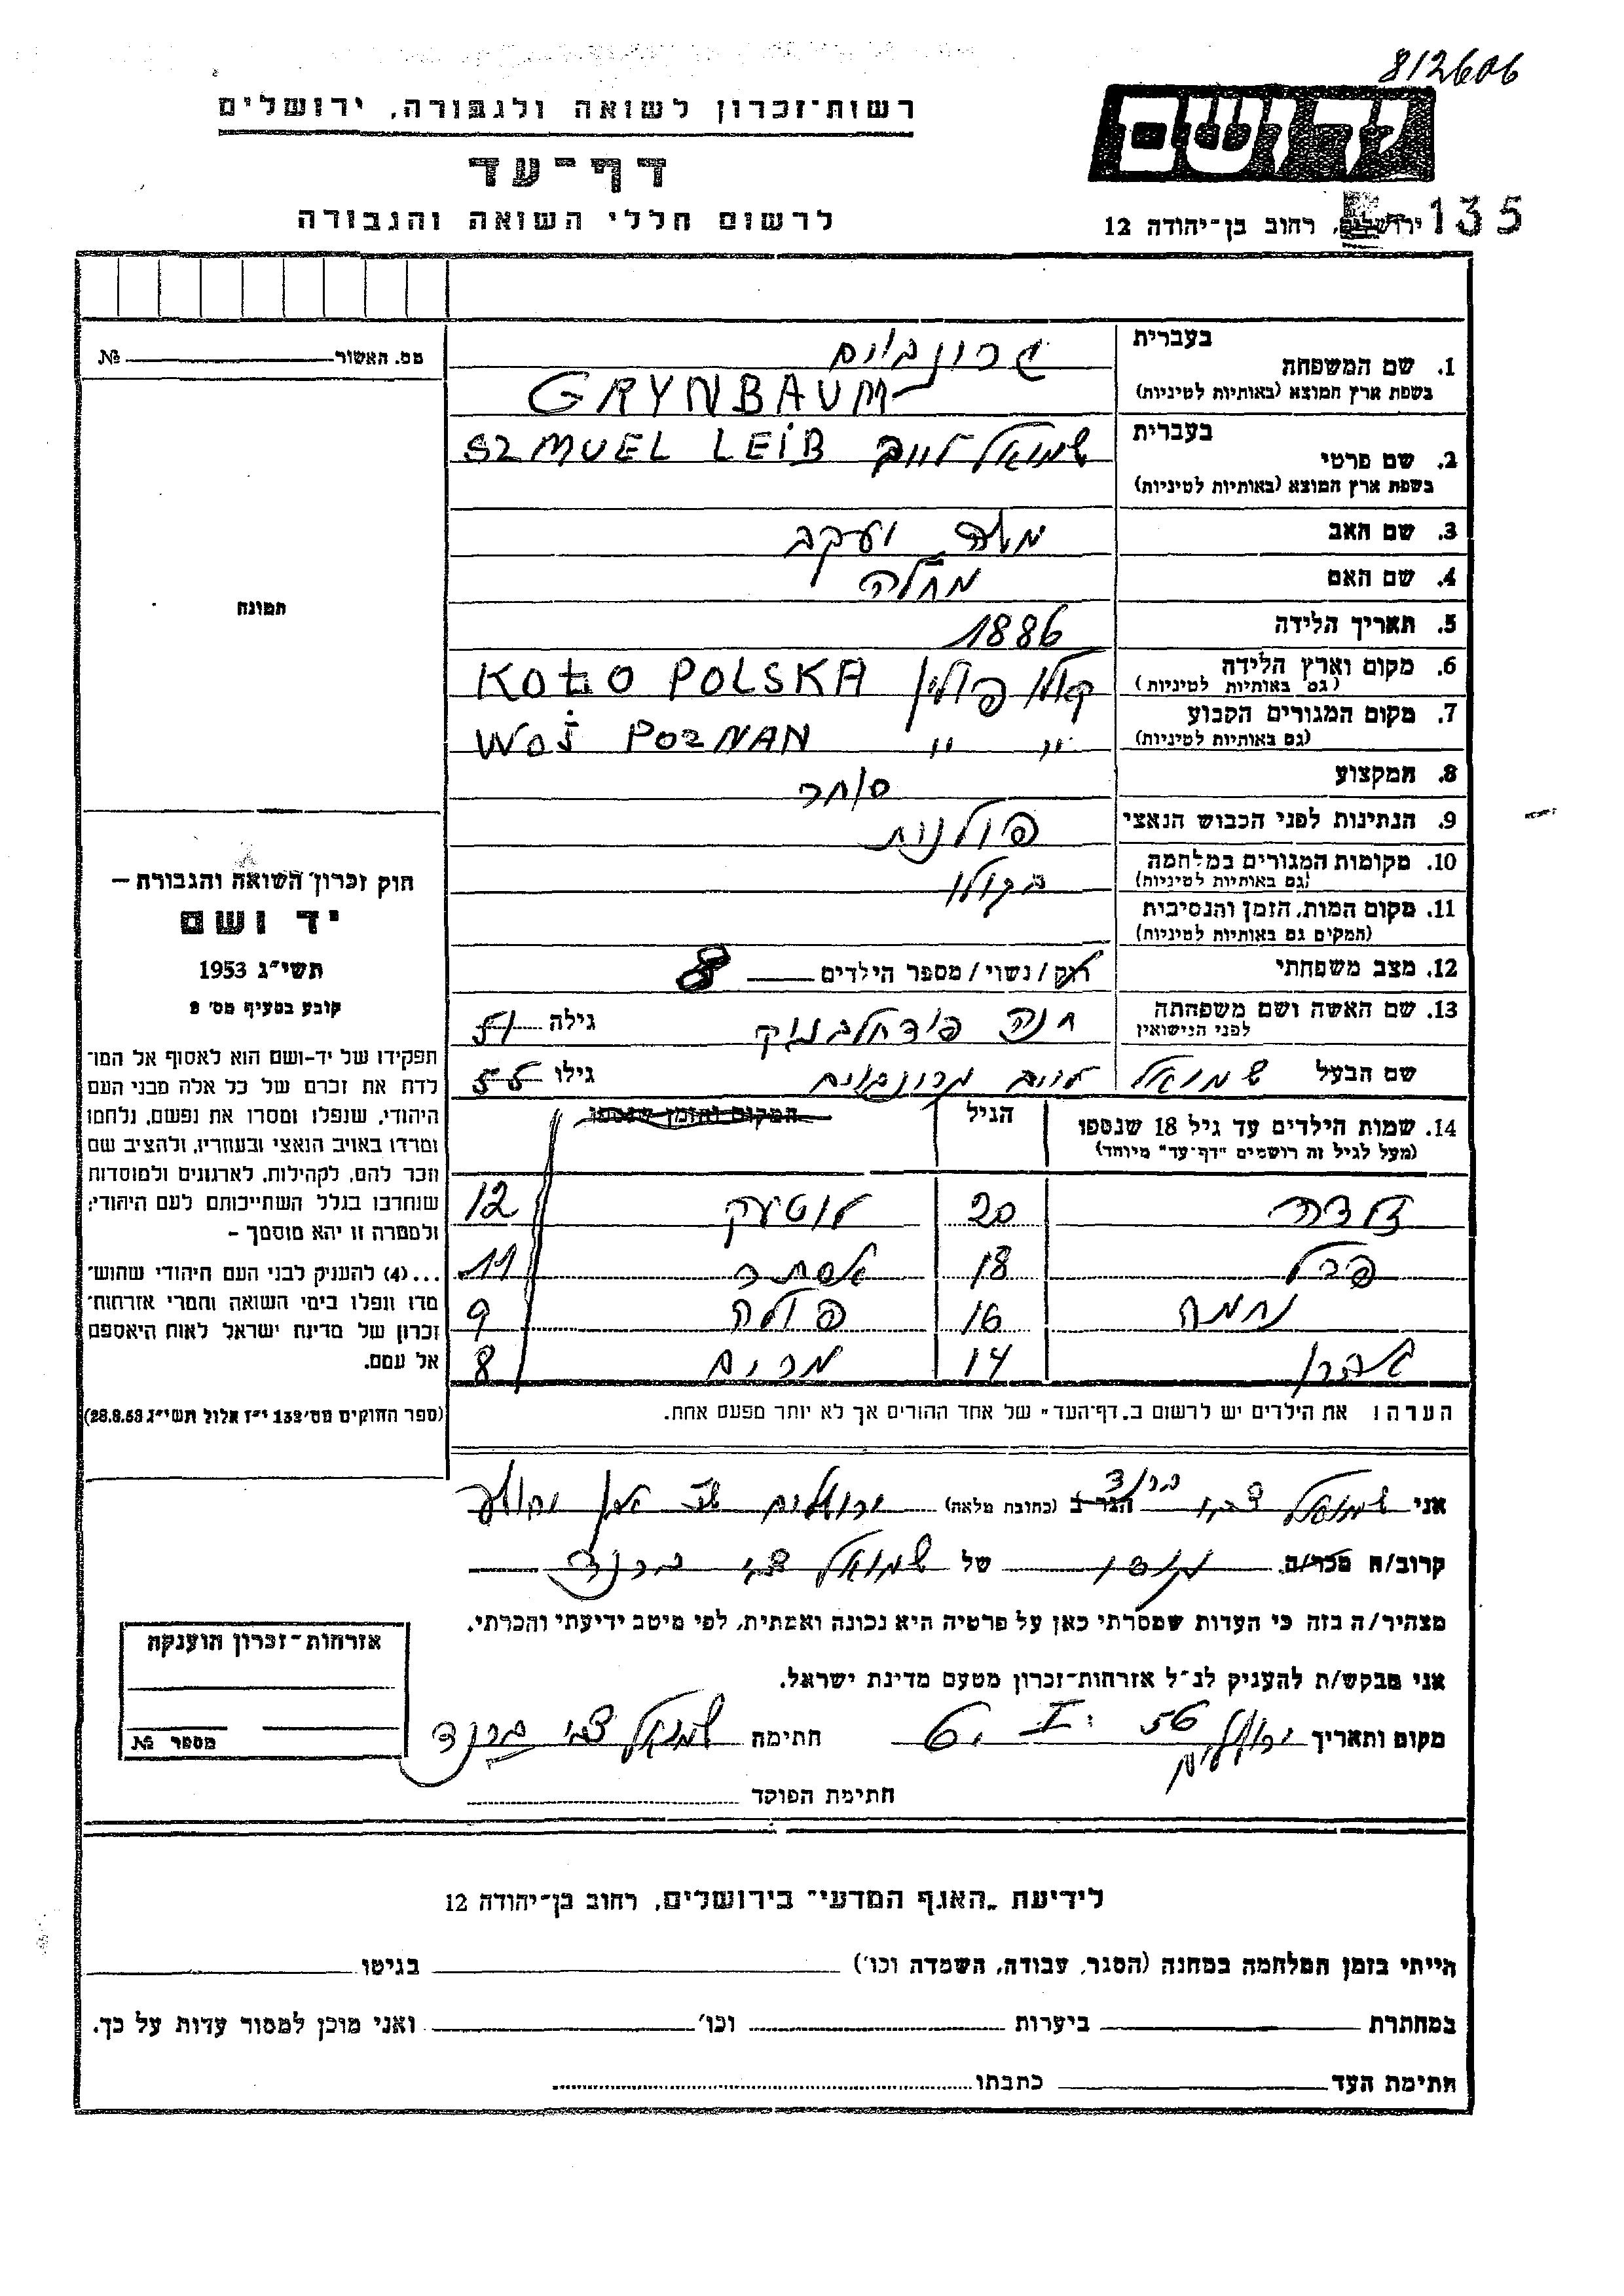 812606
רשות-זכרון לשואה ולגבורה, ירושלים
ידושם
דף-עד
לרשום חללי השואה והגבורה
135
ירושלים, רחוב בן-יהודה 12
מס. האשור №
1. שם המשפחה
בעברית גרונבוים
בשפת ארץ המוצא (באותיות לטיניות) GRYNBAUM
2. שם פרטי
בעברית שמואל לייב SZMUEL LEIB
בשפת ארץ המוצא (באותיות לטיניות)
3. שם האב משה יעקב
4. שם האם מחלה
5. תאריך הלידה 1886
6. מקום וארץ הלידה קולו פולין KOŁO POLSKA
(גם באותיות לטיניות)
7. מקום המגורים הקבוע " " WOJ POZNAN
(גם באותיות לטיניות)
8. המקצוע סוחר
9. הנתינות לפני הכבוש הנאצי פולנית
10. מקומות המגורים במלחמה בקולו
(גם באותיות לטיניות)
11. מקום המות, הזמן והנסיבות
(המקום גם באותיות לטיניות)
12. מצב משפחתי רוק / נשוי / מספר הילדים 8
13. שם האשה ושם משפחתה חנה גילה 51
לפני הנישואין
שם הבעל שמואל לייב גרונבוים גילו 55
14. שמות הילדים עד גיל 18 שנספו הגיל המקום והזמן שנספו
(מעל לגיל זה רושמים "דף-עד" מיוחד)
20 12
פרל 18 אסתר 11
נחמה 16 פולה 9
14 מרים 8
הערה: את הילדים יש לרשום ב"דף-העד" של אחד ההורים אך לא יותר מפעם אחת.
תמונה
חוק זכרון השואה והגבורה –
יד ושם
תשי"ג 1953
קובע בסעיף מס' 2
תפקידו של יד-ושם הוא לאסוף אל המו־
לדת את זכרם של כל אלה מבני העם
היהודי, שנפלו ומסרו את נפשם, נלחמו
ומרדו באויב הנאצי ובעוזריו, ולהציב שם
וזכר להם, לקהילות, לארגונים ולמוסדות
שנחרבו בגלל השתייכותם לעם היהודי;
ולמטרה זו יהא מוסמך –
...(4) להעניק לבני העם היהודי שהוש־
מדו ונפלו בימי השואה והמרי אזרחות־
זכרון של מדינת ישראל לאות היאספם
אל עמם.
(ספר החוקים מס' 132 י"ז אלול תשי"ג 28.8.53)
אני שמואל צבי ברנד הגר ב (כתובת מלאה) ירושלים
קרוב/ה מכר/ה של שמואל צבי ברנד
מצהיר/ה בזה כי העדות שמסרתי כאן על פרטיה היא נכונה ואמתית, לפי מיטב ידיעתי והכרתי.
אני מבקש/ת להעניק לנ"ל אזרחות-זכרון מטעם מדינת ישראל.
מקום ותאריך ירושלים 56 I חתימה שמואל צבי ברנד
חתימת הפוקד
אזרחות-זכרון הוענקה
מספר №
לידיעת "האגף המדעי" בירושלים, רחוב בן-יהודה 12
הייתי בזמן המלחמה במחנה (הסגר, עבודה, השמדה וכו') בגיטו
במחתרת ביערות וכו' ואני מוכן למסור עדות על כך.
חתימת העד כתבתו